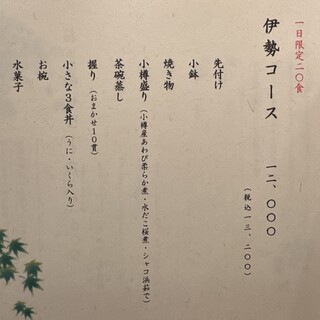 一日限定二〇食
伊勢コース 一二、〇〇〇
(税込一三、二〇〇)
先付け
小鉢
焼き物
小樽盛り(小樽産あわび柔らか煮・水だこ桜煮・シャコ浜茹で)
茶碗蒸し
握り(おまかせ10貫)
小さな3食丼(うに・いくら入り)
お椀
水菓子